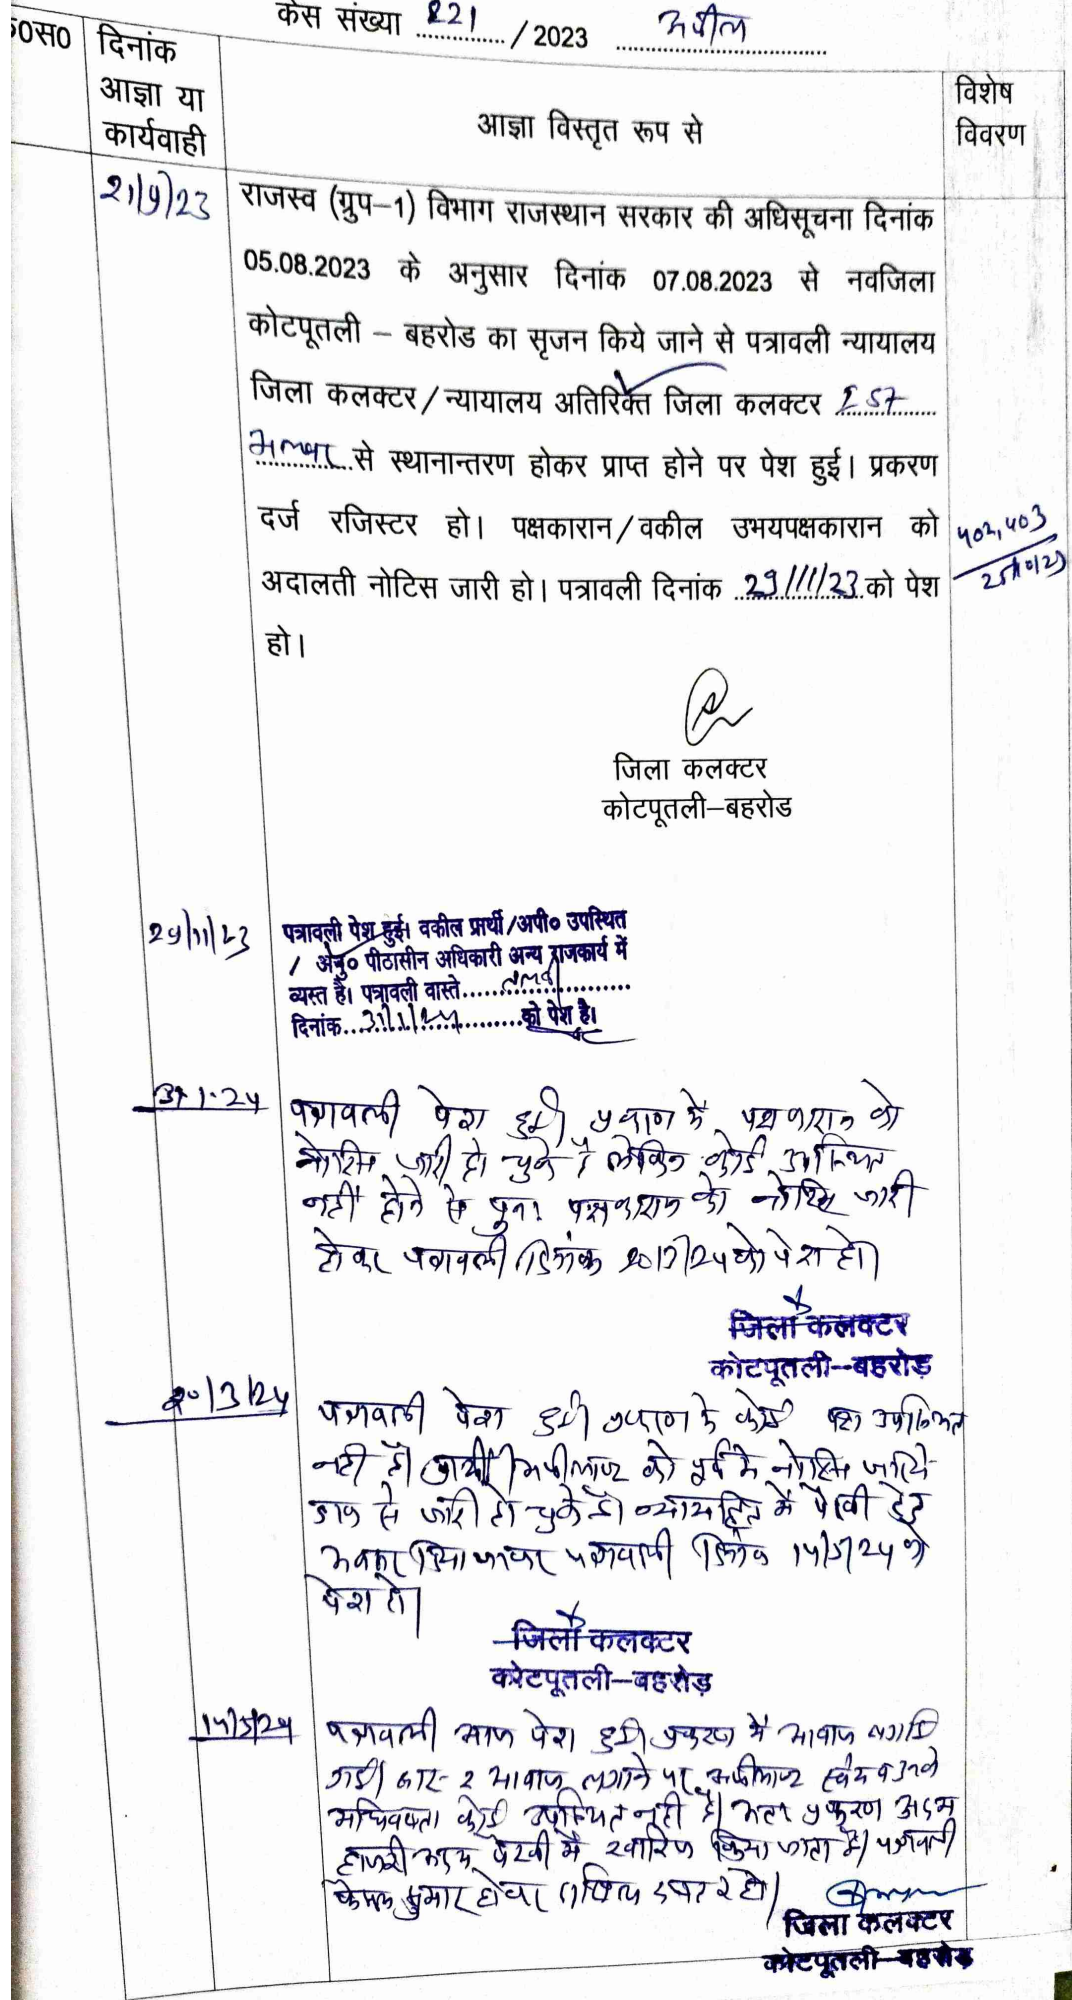 केस संख्या 221 / 2023 अपील
०स०
दिनांक
आज्ञा या
कार्यवाही
आज्ञा विस्तृत रूप से
विशेष
विवरण
21/9/23
राजस्व (ग्रुप–1) विभाग राजस्थान सरकार की अधिसूचना दिनांक
05.08.2023 के अनुसार दिनांक 07.08.2023 से नवजिला
कोटपूतली – बहरोड का सृजन किये जाने से पत्रावली न्यायालय
जिला कलक्टर/न्यायालय अतिरिक्त जिला कलक्टर
से स्थानान्तरण होकर प्राप्त होने पर पेश हुई। प्रकरण
दर्ज रजिस्टर हो। पक्षकारान/वकील उभयपक्षकारान को
अदालती नोटिस जारी हो। पत्रावली दिनांक 29/11/23 को पेश
हो।
402,403
25/10/23
जिला कलक्टर
कोटपूतली–बहरोड
29/11/23
पत्रावली पेश हुई। वकील प्रार्थी/अपी० उपस्थित
/ अनु० पीठासीन अधिकारी अन्य राजकार्य में
व्यस्त है। पत्रावली वास्ते तलबी
दिनांक 31/1/24 को पेश है।
31-1-24
पत्रावली पेश हुई। प्रकरण में पक्षकारान को
नोटिस जारी हो चुके है लेकिन कोई उपस्थित
नहीं होने से पुनः पक्षकारान को नोटिस जारी
होकर पत्रावली दिनांक 20/3/24 को पेश हो।
जिला कलक्टर
कोटपूतली–बहरोड़
20/3/24
पत्रावली पेश हुई। प्रकरण में कोई पक्ष उपस्थित
नहीं है। प्रार्थी/अपीलान्ट को पूर्व में नोटिस जरिये
डाक से जारी हो चुके है। न्यायहित में पैरवी हेतु
अवसर दिया जाकर पत्रावली दिनांक 14/5/24 को
पेश हो।
जिला कलक्टर
कोटपूतली–बहरोड़
14/5/24
पत्रावली आज पेश हुई। प्रकरण में आवाज लगाई
गई। बार-2 आवाज लगाने पर अपीलान्ट स्वंय व उनके
अधिवक्ता कोई उपस्थित नहीं है। अतः प्रकरण अदम
हाजरी अदम पैरवी में खारिज किया जाता है। पत्रावली
फैसल शुमार होकर दाखिल दफ्तर हो।
जिला कलक्टर
कोटपूतली–बहरोड़